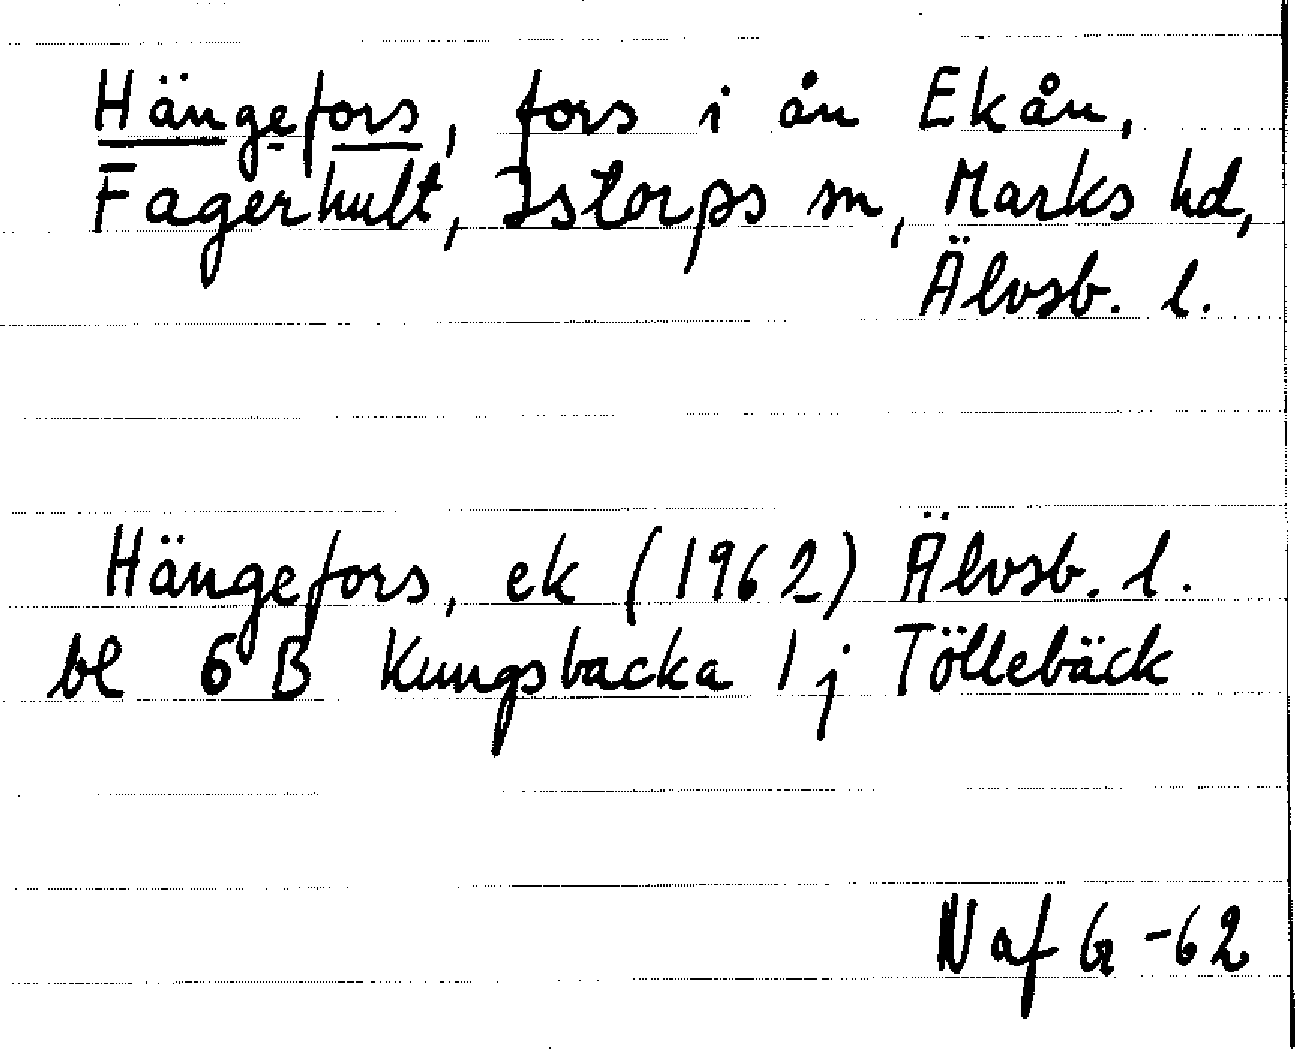 Hängefors, fors i ån Ekån,
Fagerhult, Istorps sn, Marks hd,
Älvsb. l.
Hängefors, ek (1962) Älvsb. l.
bl 6 B Kungsbacka 1 j Töllebäck
N af G -62